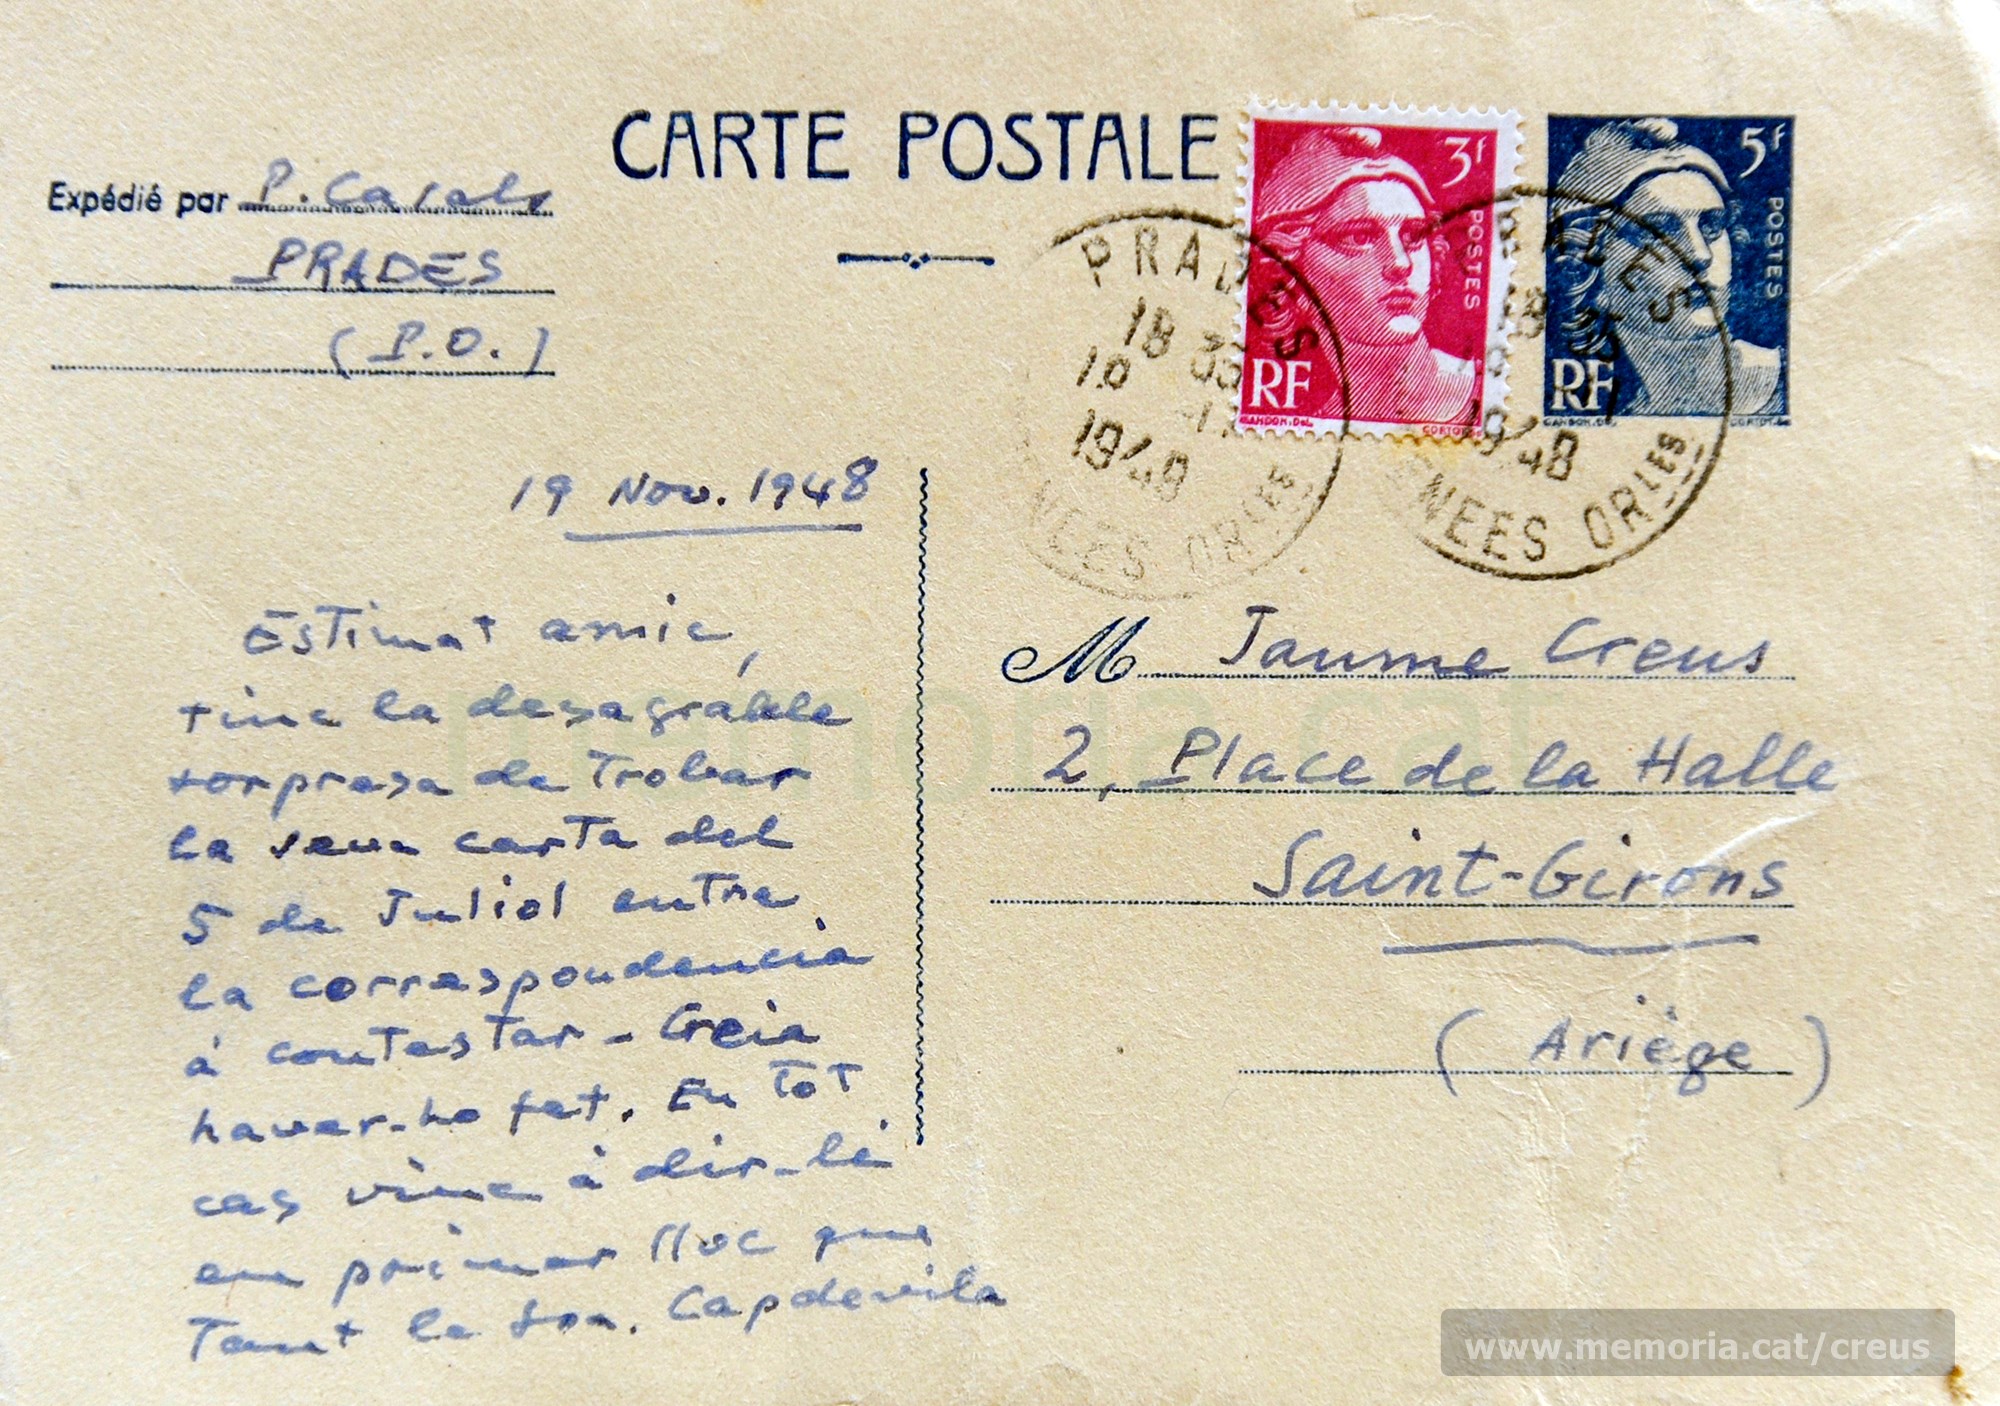 CARTE POSTALE
Expédié par P. Casals
PRADES
(P.O.)
3f
POSTES
RF
GANDON.DEL
5f
POSTES
RF
PRADES
18 35
10 -11
1948
NEES ORLES
18 35
1948
ENEES ORLES
19 Nov. 1948
Estimat amic,
tinc la desagrable
sorpresa de trobar
la seva carta del
5 de Juliol entre
la correspondencia
à contestar - Creia
haver-ho fet. En tot
cas vinc à dir-lé
en primer lloc que
Tant la Sra. Capdevila
M Jaume Creus
2, Place de la Halle
Saint-Girons
(Ariège)
memoria.cat
www.memoria.cat/creus